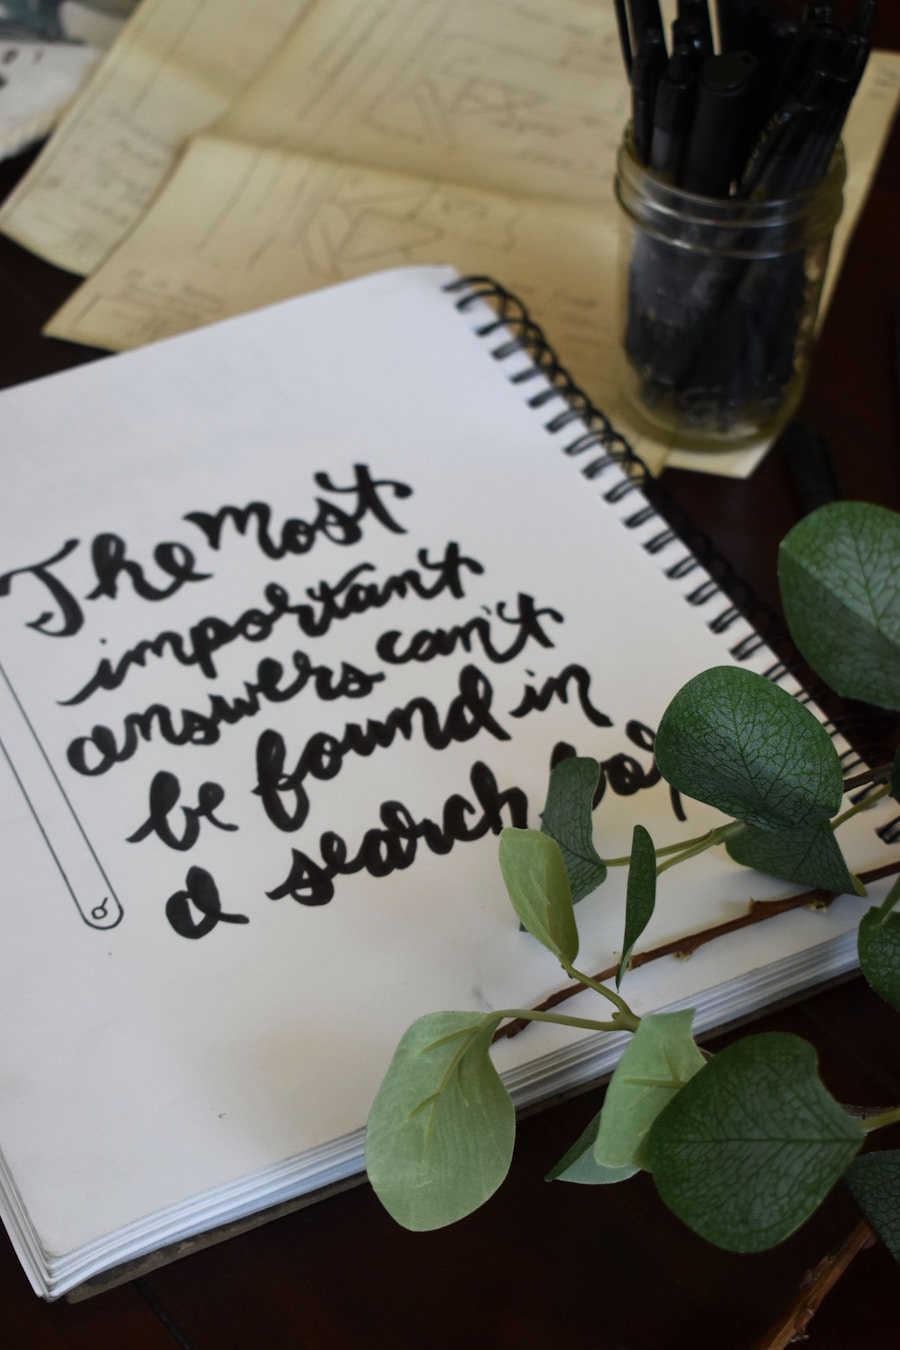 The most
important
answers can't
be found in
a search